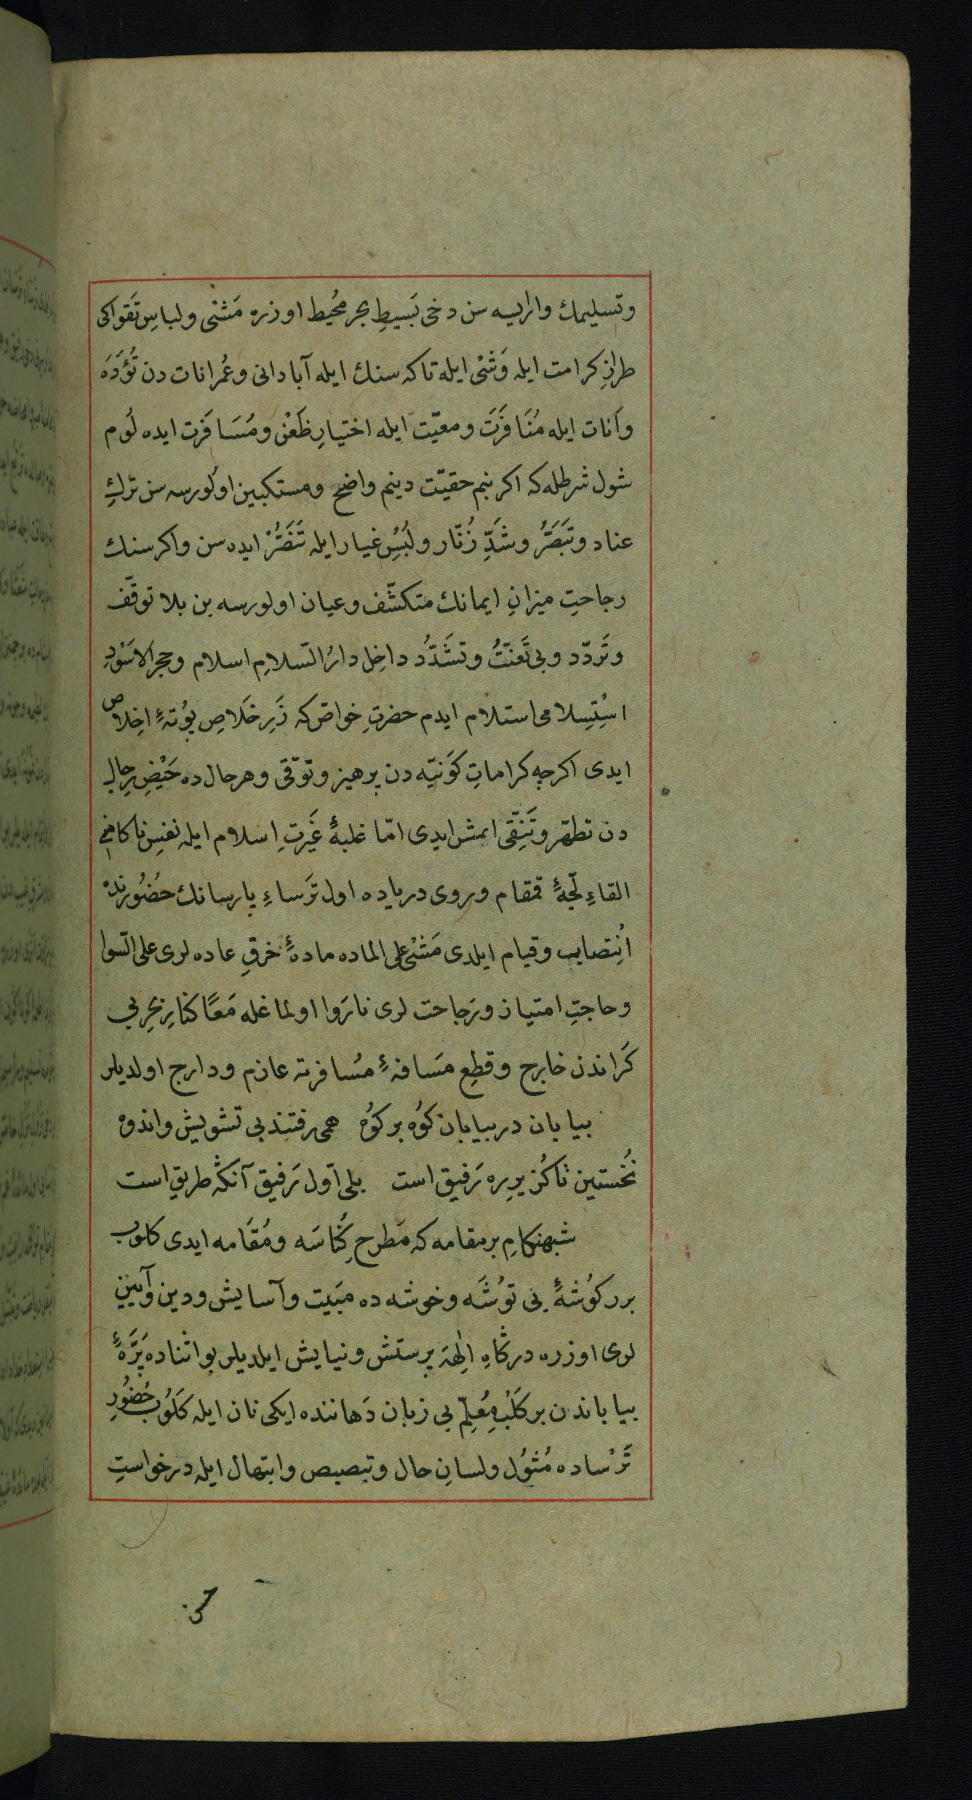 وتسليمك وارايسه سن دخی بَسيطِ بحر مُحيط اوزره مَشْی ولباسِ تَقواكی
طرازِ كرامت ايله وَشْی ايله تاكه سنك ايله آبادانی وعُمرانات دن تُؤَدَه
وأنات ايله مُنَافَرَت ومعيّت ايله اختيارِ ظَعْن ومُسَافَرت ايده لُوم
شول شرطله كه اكر بنم حقيّت دينم واضح ومستكبين اولورسه سن تركِ
عناد وتَبَصَّر وشَدِّ زُنّار ولُبْسِ غيار ايله تَنَصُّرْ ايده سن واكر سنك
رجاحتِ ميزانِ ايمانك متكشّف وعيان اولورسه بن بلا توقّف
وتَردّد وبی تَعَنّتُ وتشَدُّد داخِل دارُ السّلامِ اسلام وحجر الاسْودِ
اسْتِسِلامی استلام ايدم حضرتِ خواص كه زَرِ خَلاصِ بوُتهٔ اخِلاص
ايدی اكرچه كراماتِ كَونيّه دن پرهيز وتوَقّی وهرحال ده حَيْضِ رجال
دن تطهّر وتَنقّی ايمش ايدی امّا غلبهٔ غَيرتِ اسلام ايله نفسِ ناكامنی
القاءِ لجّهٔ قمقام وروی درياده اول تَرساءِ پارسانك حضُورنده
انِتصاب وقيام ايلدی مَشْی علی الماده مادهٔ خرقِ عاده لری علی السّوا
وحاجتِ امتياز ورَجاحت لری نارَوا اولمغله مَعًا كنارِ بحرِ بی
كَراندن خارج وقطعِ مسَافهٔ مسُافرته عازم ودارج اولديلر
بيابان در بيابان كوُه بر كوُه همی رفتند بی تشويش واندوه
نُخستين ناكُزير ره رَفيق است بلی اوّل رَفيق آنكَه طريق است
شبهنكامِ بر مقامه كه مَطرحِ كُناسَه ومُقَامه ايدی كلوب
بر كوُشهٔ بی توُشَه وخوشه ده مبَيت وآسايش ودين وآيين
لری اوزره دركَاهِ الِٰهَه پرستش ونيايش ايلديلر بو اثناده پَرّهٔ
بياباندن بر كَلْبِ مُعلِّم بی زبان دَهاننده ايكی نان ايله كَلوُب حُضُورِ
تَرْساده مُثوُل ولسانِ حال وتبصبص وابتهال ايله درخواستِ